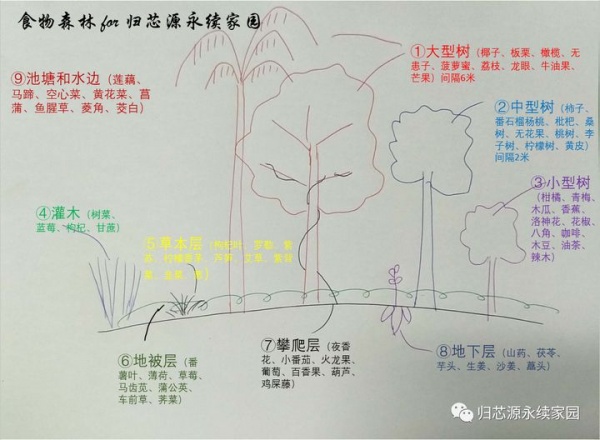 食物森林for归芯源永续家园
①大型树（椰子、板栗、橄榄、无
患子、菠萝蜜、荔枝、龙眼、牛油果、
芒果）间隔6米
⑨池塘和水边（莲藕、
马蹄、空心菜、黄花菜、菖
蒲、鱼腥草、菱角、茭白）
②中型树（柿子、
番石榴杨桃、枇杷、桑
树、无花果、桃树、李
子树、柠檬树、黄皮）
间隔2米
③小型树
（柑橘、青梅、
木瓜、香蕉、
洛神花、花椒、
八角、咖啡、
木豆、油茶、
辣木）
④灌木（树菜、
蓝莓、枸杞、甘蔗）
⑤草本层
⑥地被层（番
薯叶、薄荷、草莓、
马齿苋、蒲公英、
车前草、荠菜）
⑦攀爬层（夜香
花、小番茄、火龙果、
葡萄、百香果、葫芦、
鸡屎藤）
⑧地下层（山药、茯苓、
芋头、生姜、沙姜、藠头）
归芯源永续家园